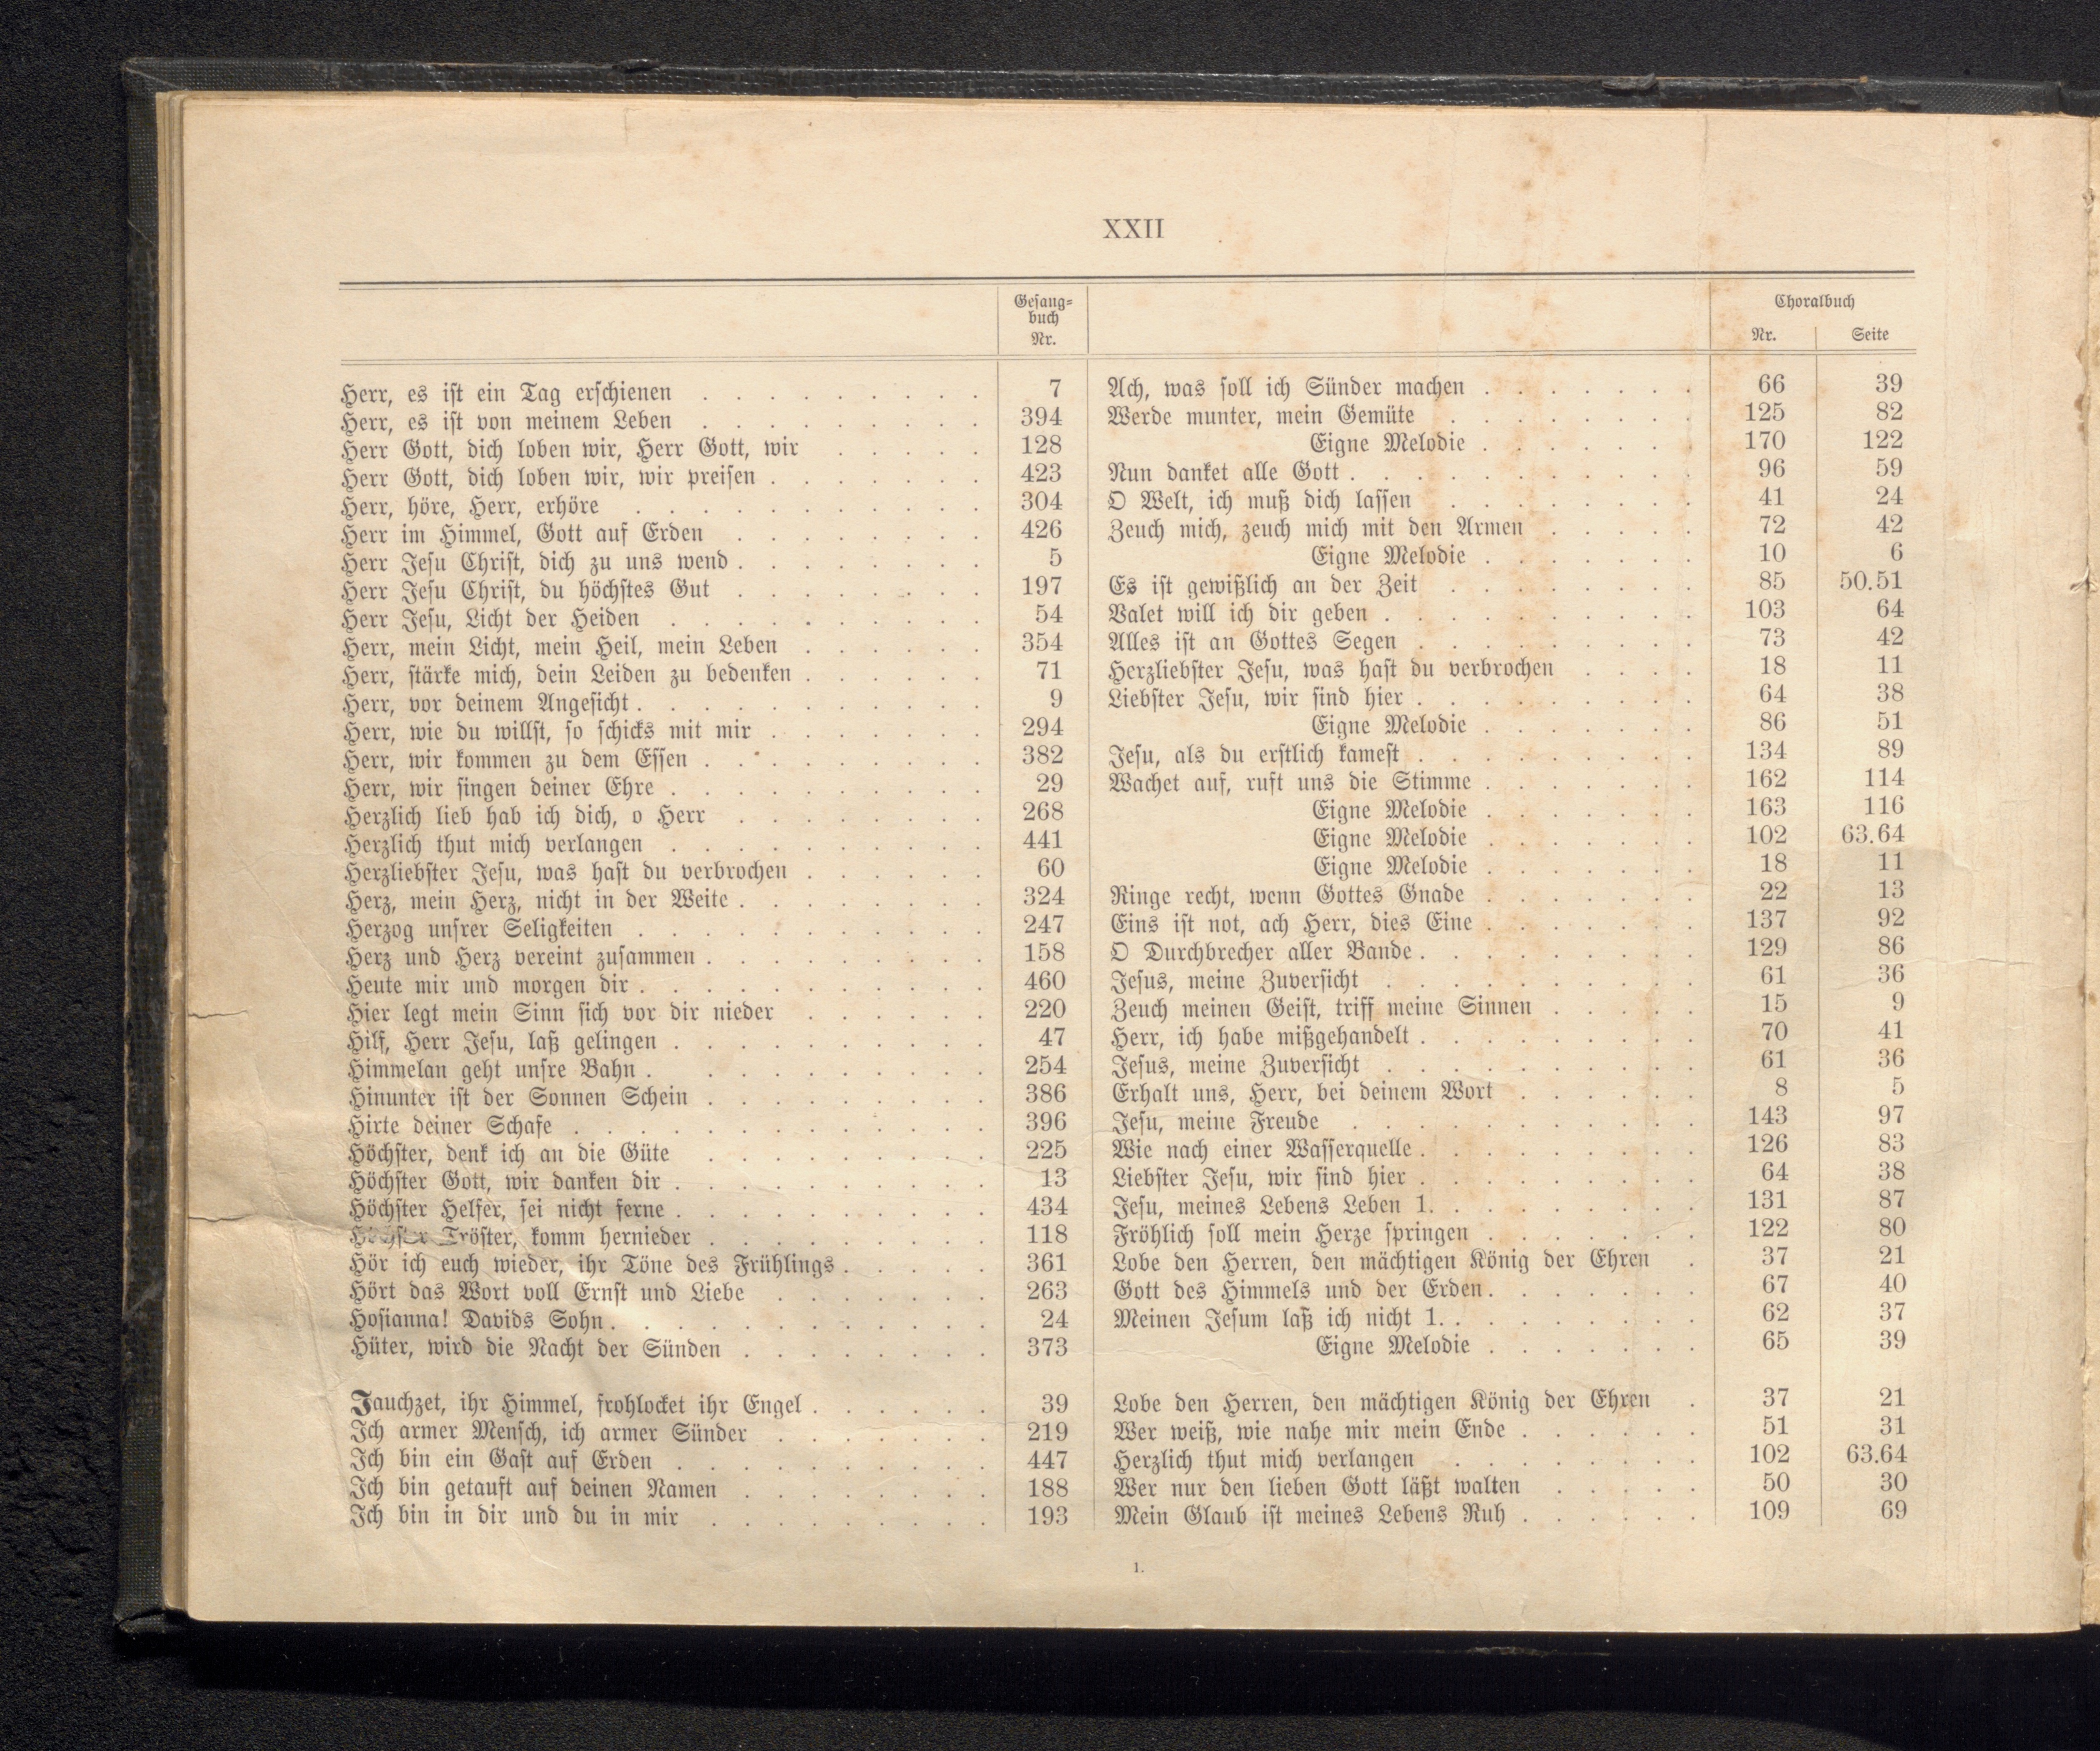 XXII
Gesang-
buch
Nr.
Choralbuch
Nr. Seite
Herr, es ist ein Tag erschienen . . . . . . . . . 7 Ach, was soll ich Sünder machen . . . . . . . 66 39
Herr, es ist von meinem Leben . . . . . . . . . 394 Werde munter, mein Gemüte . . . . . . . . 125 82
Herr Gott, dich loben wir, Herr Gott, wir . . . . . 128 Eigne Melodie . . . . . . . 170 122
Herr Gott, dich loben wir, wir preisen . . . . . . . 423 Nun danket alle Gott . . . . . . . . . . . 96 59
Herr, höre, Herr, erhöre . . . . . . . . . . . 304 O Welt, ich muß dich lassen . . . . . . . . 41 24
Herr im Himmel, Gott auf Erden . . . . . . . . 426 Zeuch mich, zeuch mich mit den Armen . . . . . 72 42
Herr Jesu Christ, dich zu uns wend . . . . . . . . 5 Eigne Melodie . . . . . . . 10 6
Herr Jesu Christ, du höchstes Gut . . . . . . . . 197 Es ist gewißlich an der Zeit . . . . . . . . 85 50.51
Herr Jesu, Licht der Heiden . . . . . . . . . . 54 Valet will ich dir geben . . . . . . . . . . 103 64
Herr, mein Licht, mein Heil, mein Leben . . . . . . 354 Alles ist an Gottes Segen . . . . . . . . . 73 42
Herr, stärke mich, dein Leiden zu bedenken . . . . . . 71 Herzliebster Jesu, was hast du verbrochen . . . . 18 11
Herr, vor deinem Angesicht . . . . . . . . . . . 9 Liebster Jesu, wir sind hier . . . . . . . . . 64 38
Herr, wie du willst, so schicks mit mir . . . . . . . 294 Eigne Melodie . . . . . . . 86 51
Herr, wir kommen zu dem Essen . . . . . . . . . 382 Jesu, als du erstlich kamest . . . . . . . . . 134 89
Herr, wir singen deiner Ehre . . . . . . . . . . 29 Wachet auf, ruft uns die Stimme . . . . . . . 162 114
Herzlich lieb hab ich dich, o Herr . . . . . . . . 268 Eigne Melodie . . . . . . . 163 116
Herzlich thut mich verlangen . . . . . . . . . . 441 Eigne Melodie . . . . . . . 102 63.64
Herzliebster Jesu, was hast du verbrochen . . . . . . 60 Eigne Melodie . . . . . . . 18 11
Herz, mein Herz, nicht in der Weite . . . . . . . . 324 Ringe recht, wenn Gottes Gnade . . . . . . . 22 13
Herzog unsrer Seligkeiten . . . . . . . . . . . 247 Eins ist not, ach Herr, dies Eine . . . . . . . 137 92
Herz und Herz vereint zusammen . . . . . . . . . 158 O Durchbrecher aller Bande . . . . . . . . . 129 86
Heute mir und morgen dir . . . . . . . . . . . 460 Jesus, meine Zuversicht . . . . . . . . . . 61 36
Hier legt mein Sinn sich vor dir nieder . . . . . . 220 Zeuch meinen Geist, triff meine Sinnen . . . . . 15 9
Hilf, Herr Jesu, laß gelingen . . . . . . . . . . 47 Herr, ich habe mißgehandelt . . . . . . . . . 70 41
Himmelan geht unsre Bahn . . . . . . . . . . 254 Jesus, meine Zuversicht . . . . . . . . . . 61 36
Hinunter ist der Sonnen Schein . . . . . . . . . 386 Erhalt uns, Herr, bei deinem Wort . . . . . . 8 5
Hirte deiner Schafe . . . . . . . . . . . . . 396 Jesu, meine Freude . . . . . . . . . . . 143 97
Höchster, denk ich an die Güte . . . . . . . . . 225 Wie nach einer Wasserquelle . . . . . . . . . 126 83
Höchster Gott, wir danken dir . . . . . . . . . . 13 Liebster Jesu, wir sind hier . . . . . . . . . 64 38
Höchster Helfer, sei nicht ferne . . . . . . . . . . 434 Jesu, meines Lebens Leben 1. . . . . . . . . 131 87
Höchster Tröster, komm hernieder . . . . . . . . . 118 Fröhlich soll mein Herze springen . . . . . . . 122 80
Hör ich euch wieder, ihr Töne des Frühlings . . . . . 361 Lobe den Herren, den mächtigen König der Ehren . 37 21
Hört das Wort voll Ernst und Liebe . . . . . . . 263 Gott des Himmels und der Erden . . . . . . . 67 40
Hosianna! Davids Sohn . . . . . . . . . . . . 24 Meinen Jesum laß ich nicht 1. . . . . . . . . 62 37
Hüter, wird die Nacht der Sünden . . . . . . . . 373 Eigne Melodie . . . . . . . 65 39
Jauchzet, ihr Himmel, frohlocket ihr Engel . . . . . . 39 Lobe den Herren, den mächtigen König der Ehren . 37 21
Ich armer Mensch, ich armer Sünder . . . . . . . 219 Wer weiß, wie nahe mir mein Ende . . . . . . 51 31
Ich bin ein Gast auf Erden . . . . . . . . . . 447 Herzlich thut mich verlangen . . . . . . . . 102 63.64
Ich bin getauft auf deinen Namen . . . . . . . . 188 Wer nur den lieben Gott läßt walten . . . . . 50 30
Ich bin in dir und du in mir . . . . . . . . . 193 Mein Glaub ist meines Lebens Ruh . . . . . . 109 69
1.